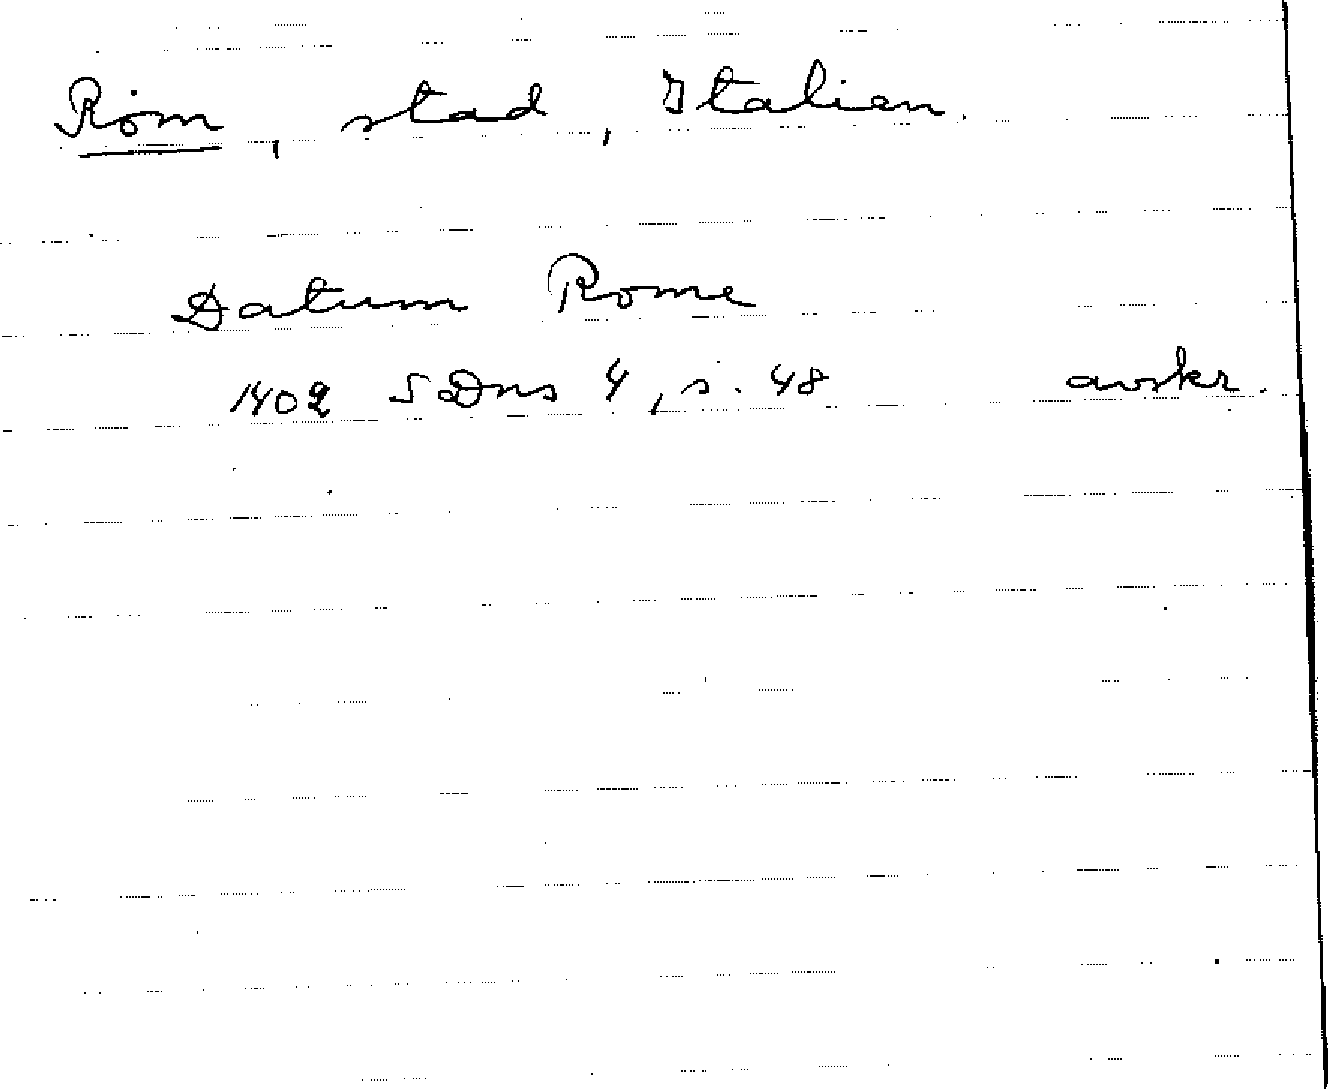 Rom, stad, Italien.
Datum Rome
1402 SDns 4, s. 48 avskr.